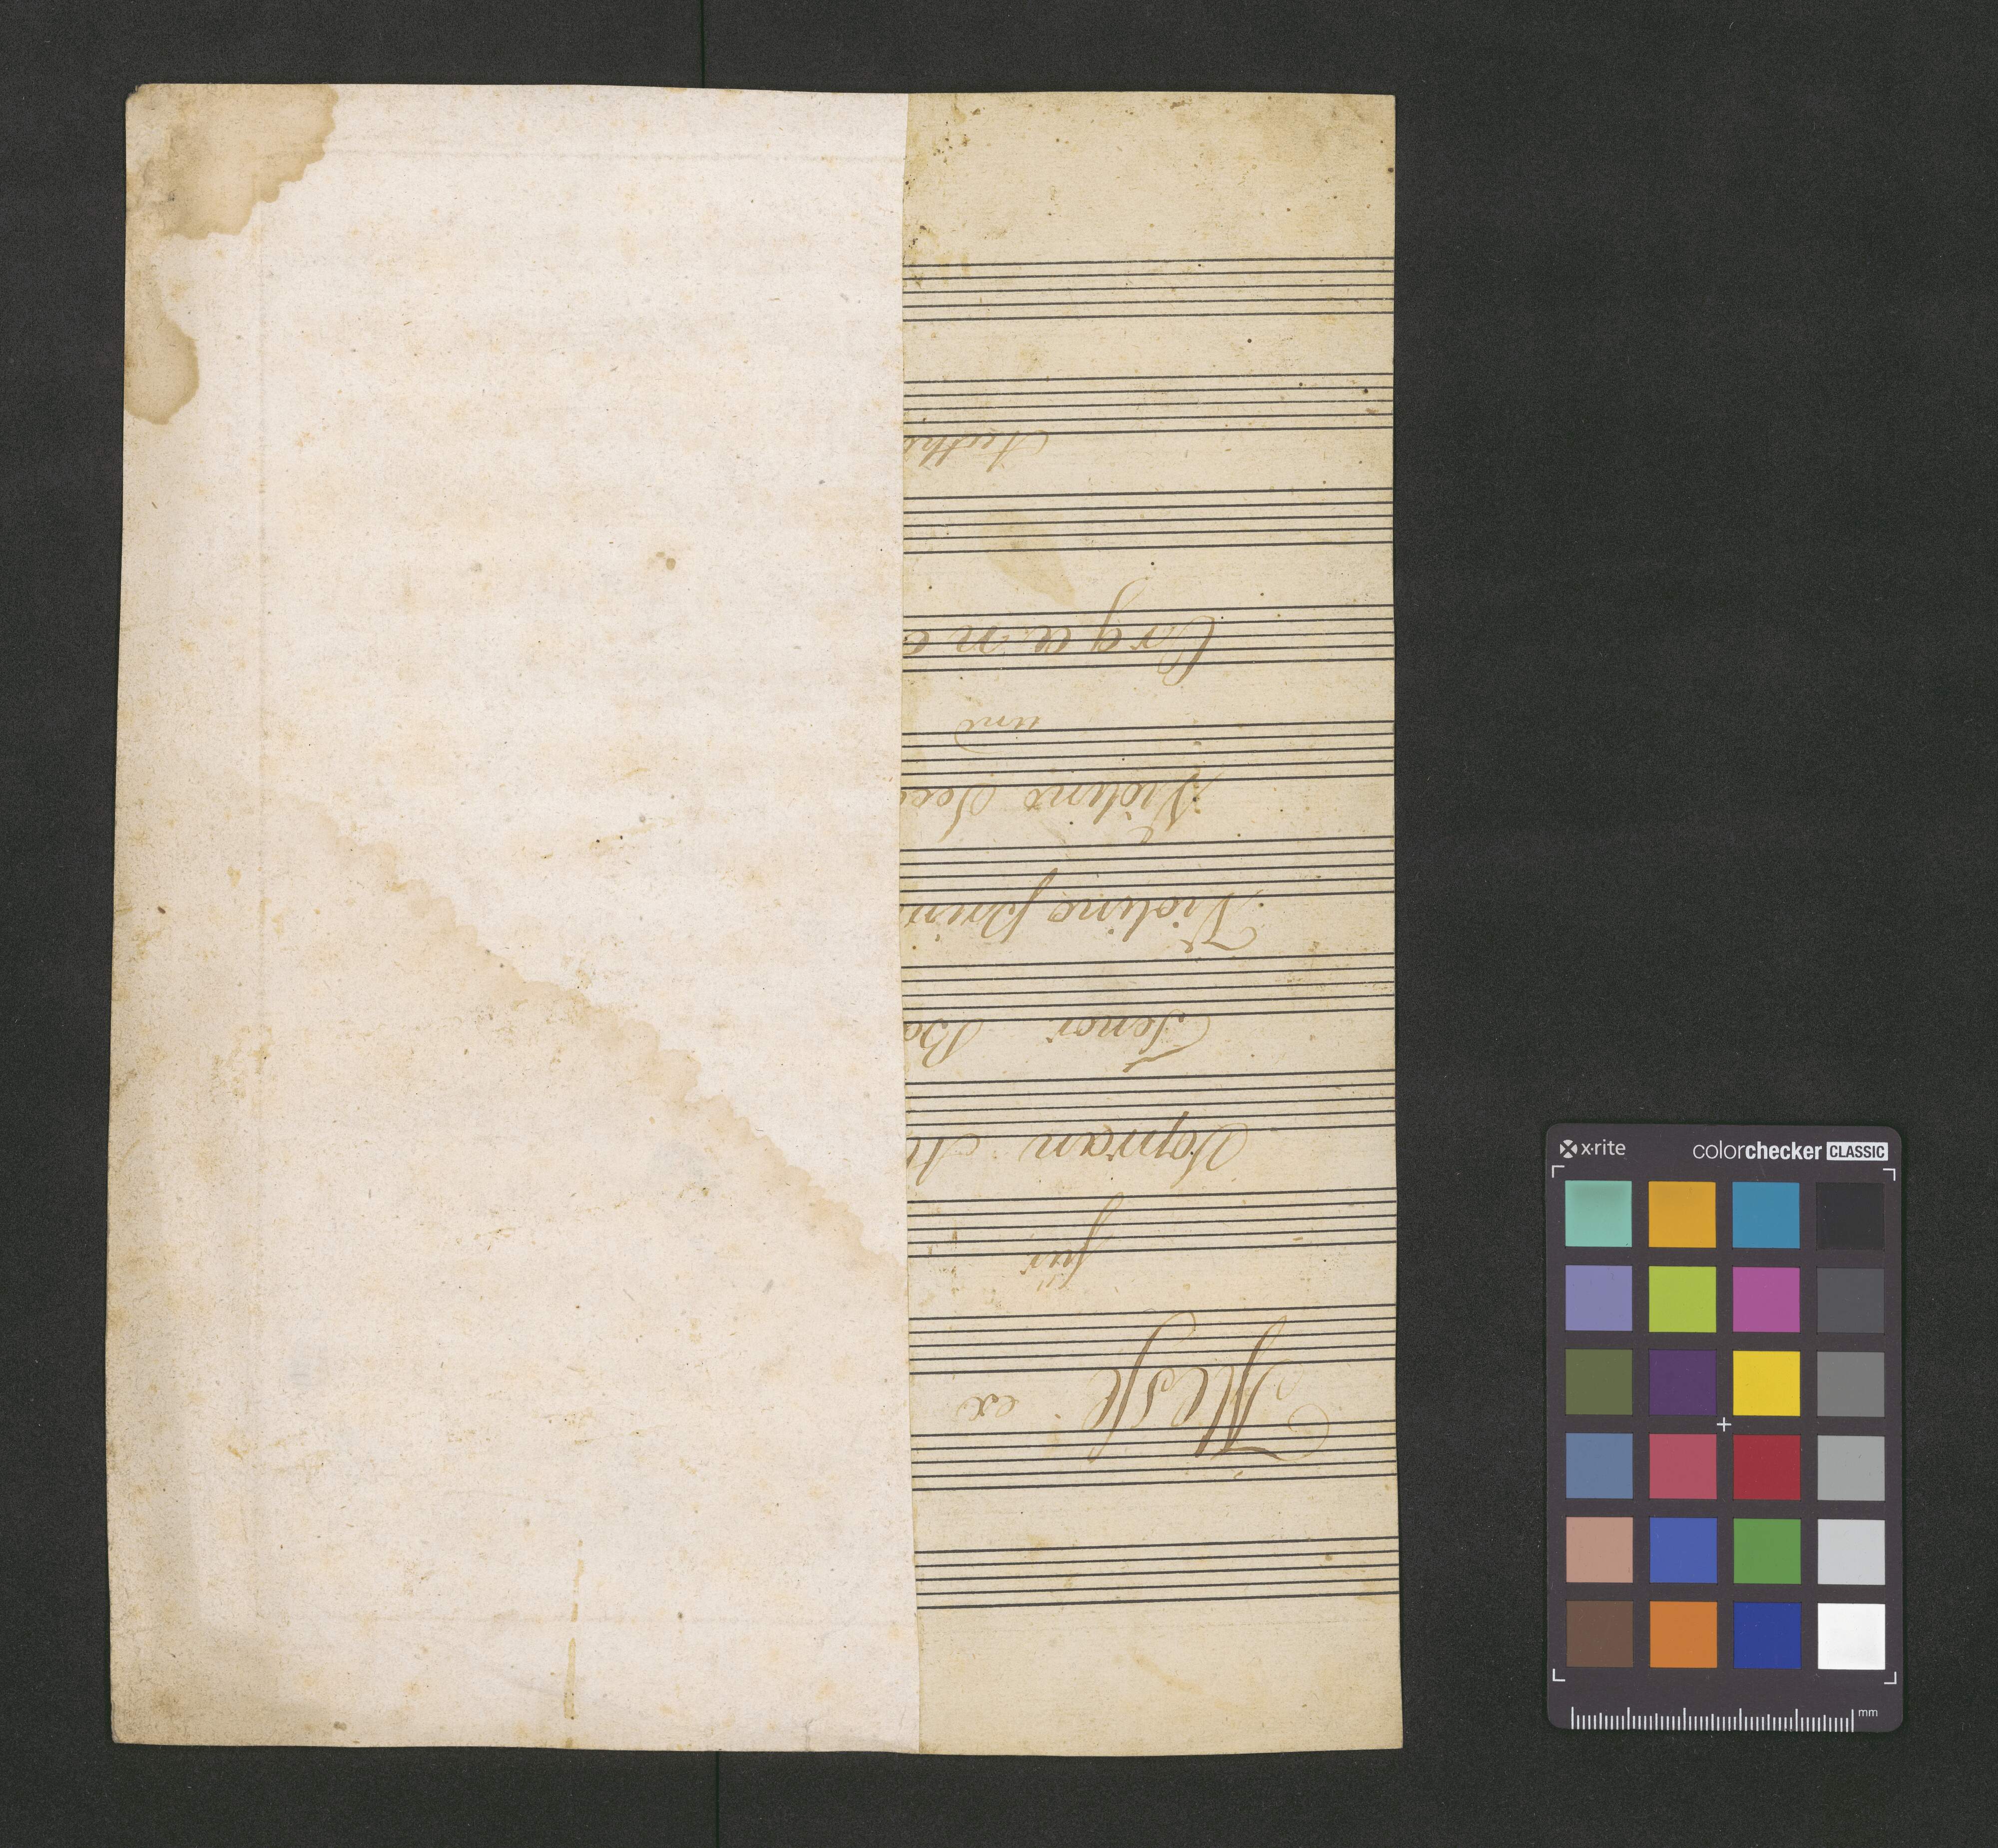 Messe ex
für
Sopran Al
Tenor Ba
Violino Prim
Violino Sec
und
Organo
Auth
x·rite colorchecker CLASSIC
mm